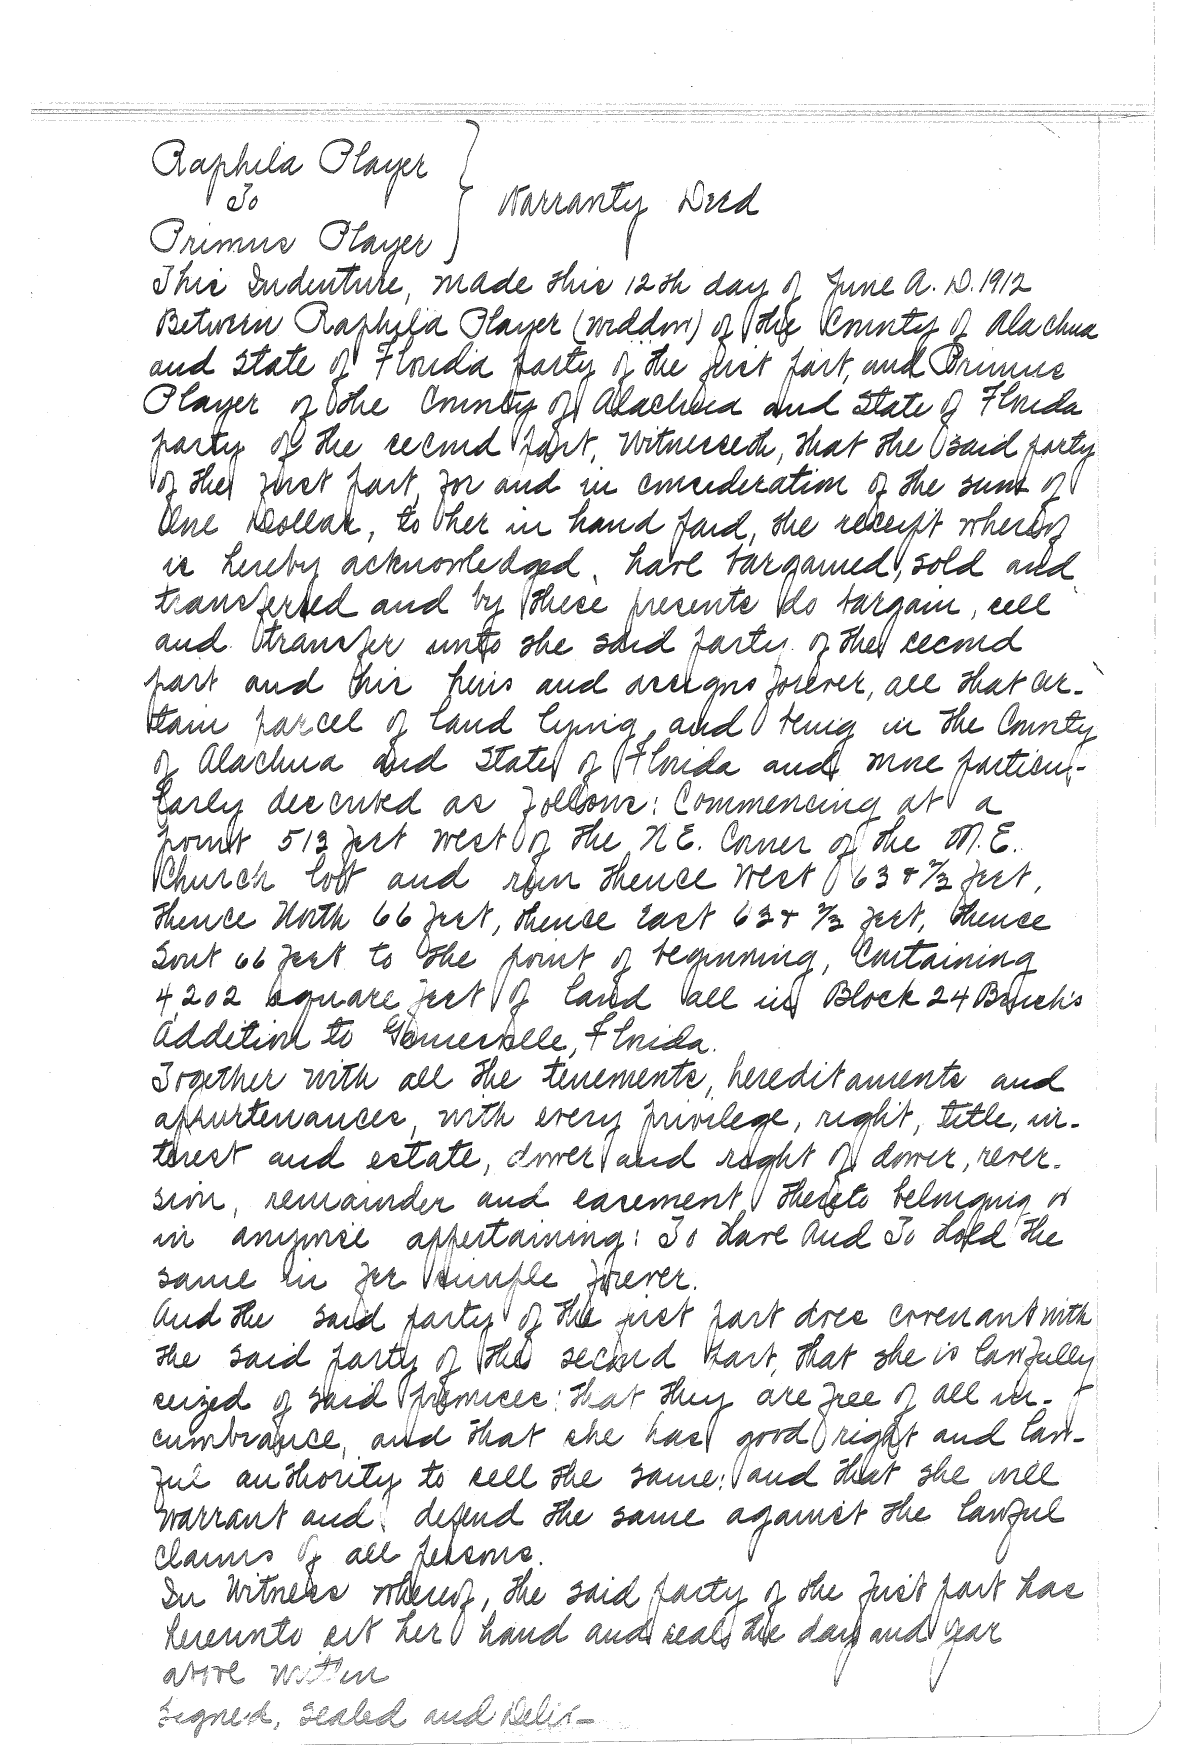 Raphila Player
To
Warranty Deed
Primus Player
This Indenture, made this 12th day of June A. D. 1912
Between Raphila Player (widdow) of the County of Alachua
and State of Florida party of the first part, and Primus
Player of the County of Alachua and State of Florida
party of the second part, Witnesseth, that the said party
of the first part, for and in consideration of the sum of
One Dollar, to her in hand paid, the receipt whereof
is hereby acknowledged, have bargained, sold and
transferred and by these presents do bargain, sell
and transfer unto the said party of the second
part and his heirs and assigns forever, all that cer-
tain parcel of land lying, and being in the County
of Alachua and State of Florida and more particu-
larly described as follows: Commencing at a
point 513 feet west of the N E. Corner of the M. E.
Church lot and run thence West 63 & 2/3 feet,
thence North 66 feet, thence East 63 & 2/3 feet, thence
Sout 66 feet to the point of beginning, Containing
4202 square feet of land all in Block 24 Brush's
Addition to Gainesville, Florida.
Together with all the tenements, hereditaments and
appurtenances, with every privilege, right, title, in-
terest and estate, dower and right of dower, rever-
sion, remainder and easement thereto belonging or
in anywise appertaining: To Have And To Hold the
same in fee simple forever.
And the said party of the first part does covenant with
the said party of the second part, that she is lawfully
seized of said premises: that they are free of all in-
cumbrance, and that she has good right and law-
ful authority to sell the same: and that she will
warrant and defend the same against the lawful
claims of all persons.
In Witness whereof, the said party of the first part has
hereunto set her hand and seal the day and year
above written
Signed, Sealed and Deliv-